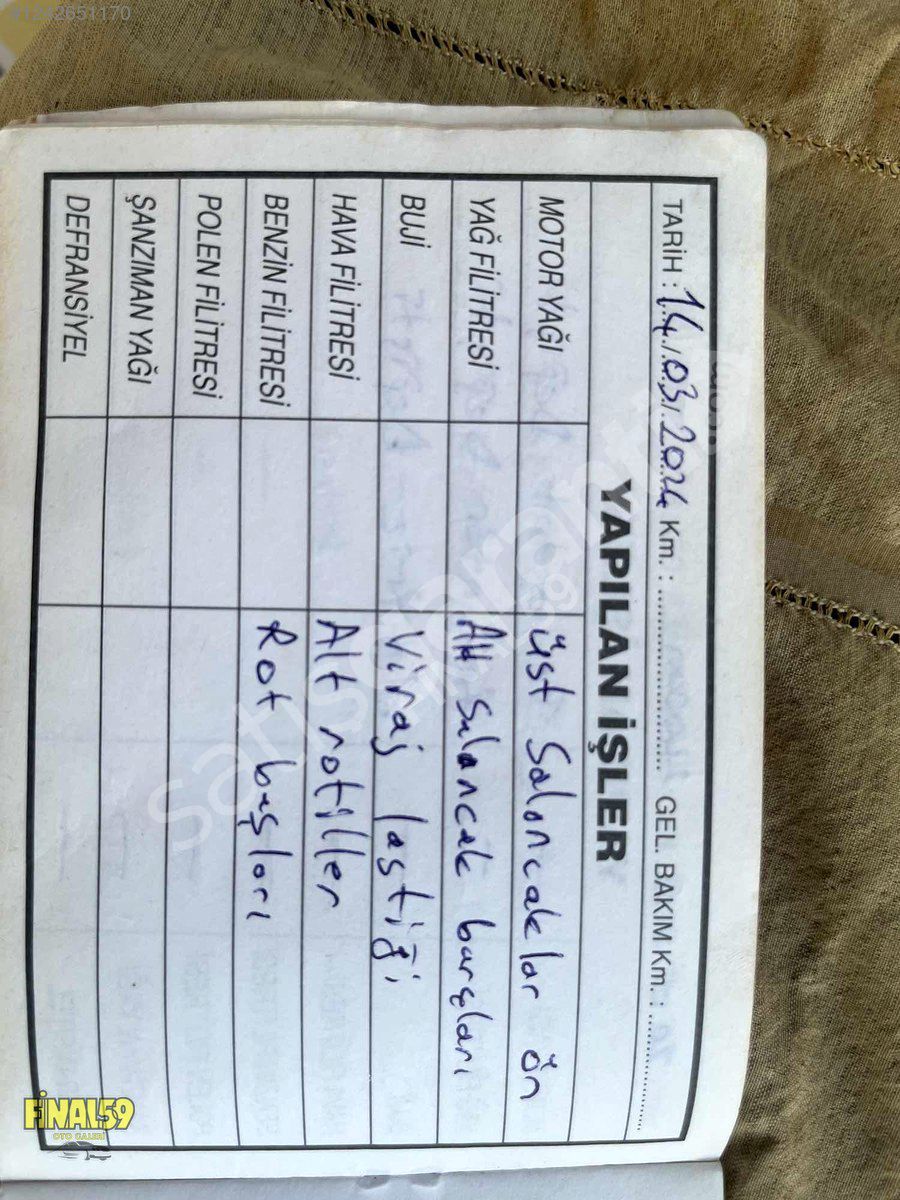 #1242651170
TARİH : 14.03.2024 Km. : .................... GEL. BAKIM Km. : ....................
YAPILAN İŞLER
MOTOR YAĞI üst Saloncaklar ön
YAĞ FİLİTRESİ Alt Salancak burçları
BUJİ Viraj lastiği
HAVA FİLİTRESİ Alt rotiller
BENZİN FİLİTRESİ Rot başları
POLEN FİLİTRESİ
ŞANZIMAN YAĞI
DEFRANSİYEL
FİNAL59
OTO GALERİ